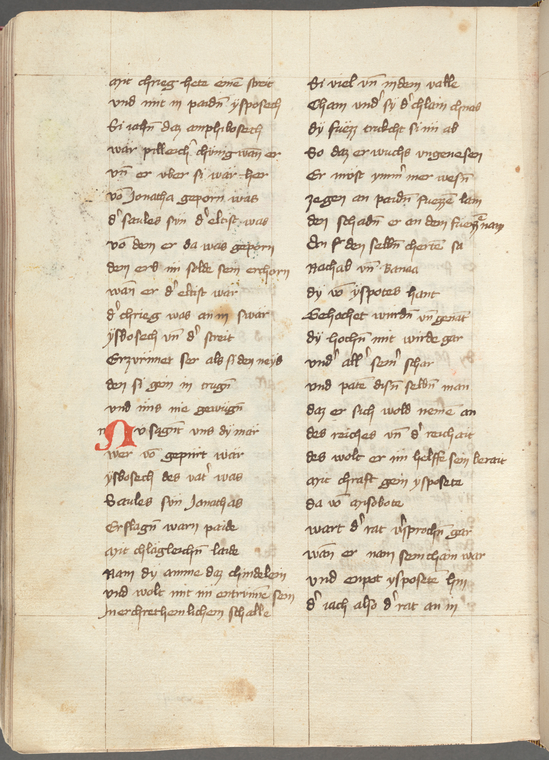 mit chrieg hete einē streit
vnd mit in paidn̄ ysposech
Si iahn̄ daz amphibosech
wār pilleich' chünig wan er
vn̄ er vber si wār her
vō Jonatha geporn was
d' saules sun d' eltist was
vō dem er da was geporn
den er d' im solde sein erchorn
wan er d' eltist wār
d' chrieg was an in swār
ysbosech vn̄ d' streit
Erzürnnet ser als si den neyd
den si gein in trugn̄
vnd ims nie gewügn̄
Nv sagnt vns dy mār
wer vō gepürt wār
ysbosech des vat' was
Saules sun Jonathas
Erslagn̄ warn paide
mit chlāgleichn̄ laide
Nam dy amme daz chindelein
vnd wolt mit im entrinnē sein
in erchrechenlichem schalle
Si viel vn̄ in dem valle
Cham vnd' sy d' chlain chnab
dy füezz trukcht si im ab
So daz er wuchs vngenesen
Er mvst ymm' mer wesn̄
zegen an paidn̄ fuezzē lam
den schadn̄ er an den fuezzē nam
den selbn̄ cherten sa
Rachab vn̄ Banaa
dy vō yspotes hant
Gehochet wurdn̄ vn̄ genāt
dy hochn̄ mit wirde gar
vnd' all' sein' schar
vnd patē disn̄ selbn̄ man
daz er sich wold nemē an
des reiches vn̄ d' reichait
des wolt er im helffe sein berait
mit chraft gein ysposete
da vō misobote
wart d' rat v'sprochn̄ gar
wan er nam sein cham war
vnd enpot ysposetē hin
d' iach also d' rat an in